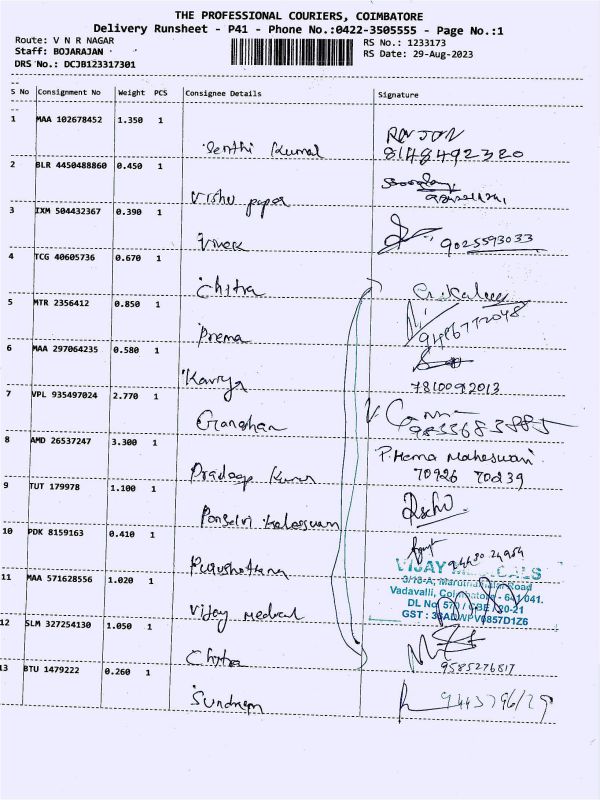 THE PROFESSIONAL COURIERS, COIMBATORE
Delivery Runsheet - P41 - Phone No.:0422-3505555 - Page No.:1
Route: V N R NAGAR RS No.: 1233173
Staff: BOJARAJAN RS Date: 29-Aug-2023
DRS No.: DCJB123317301
S No Consignment No Weight PCS Consignee Details Signature
1 MAA 102678452 1.350 1
Senthi Kumal 8148492320
2 BLR 4450488860 0.450 1
Vishu paper
3 IXM 504432367 0.390 1
Vivek 9025593033
4 TCG 40605736 0.670 1
Chitra
5 MTR 2356412 0.850 1
Prema 9486772048
6 MAA 297064235 0.580 1
Kavya 7810092013
7 VPL 935497024 2.770 1
Ganghan
8 AMD 26537247 3.300 1 P. Hema Maheswari
Pradeep Kumar 70926 70239
9 TUT 179978 1.100 1
Ponselvi
10 PDK 8159163 0.410 1
Purushothama
VIJAY MEDICALS
11 MAA 571628556 1.020 1 3/18-A, Maruthamalai Road
Vadavalli, Coimbatore - 641 041.
Vijay Medical DL No. 570 / CBE / 20-21
GST : 33ADWPV0857D1Z6
12 SLM 327254130 1.050 1
Chitra 9585276817
13 BTU 1479222 0.260 1
Sundram